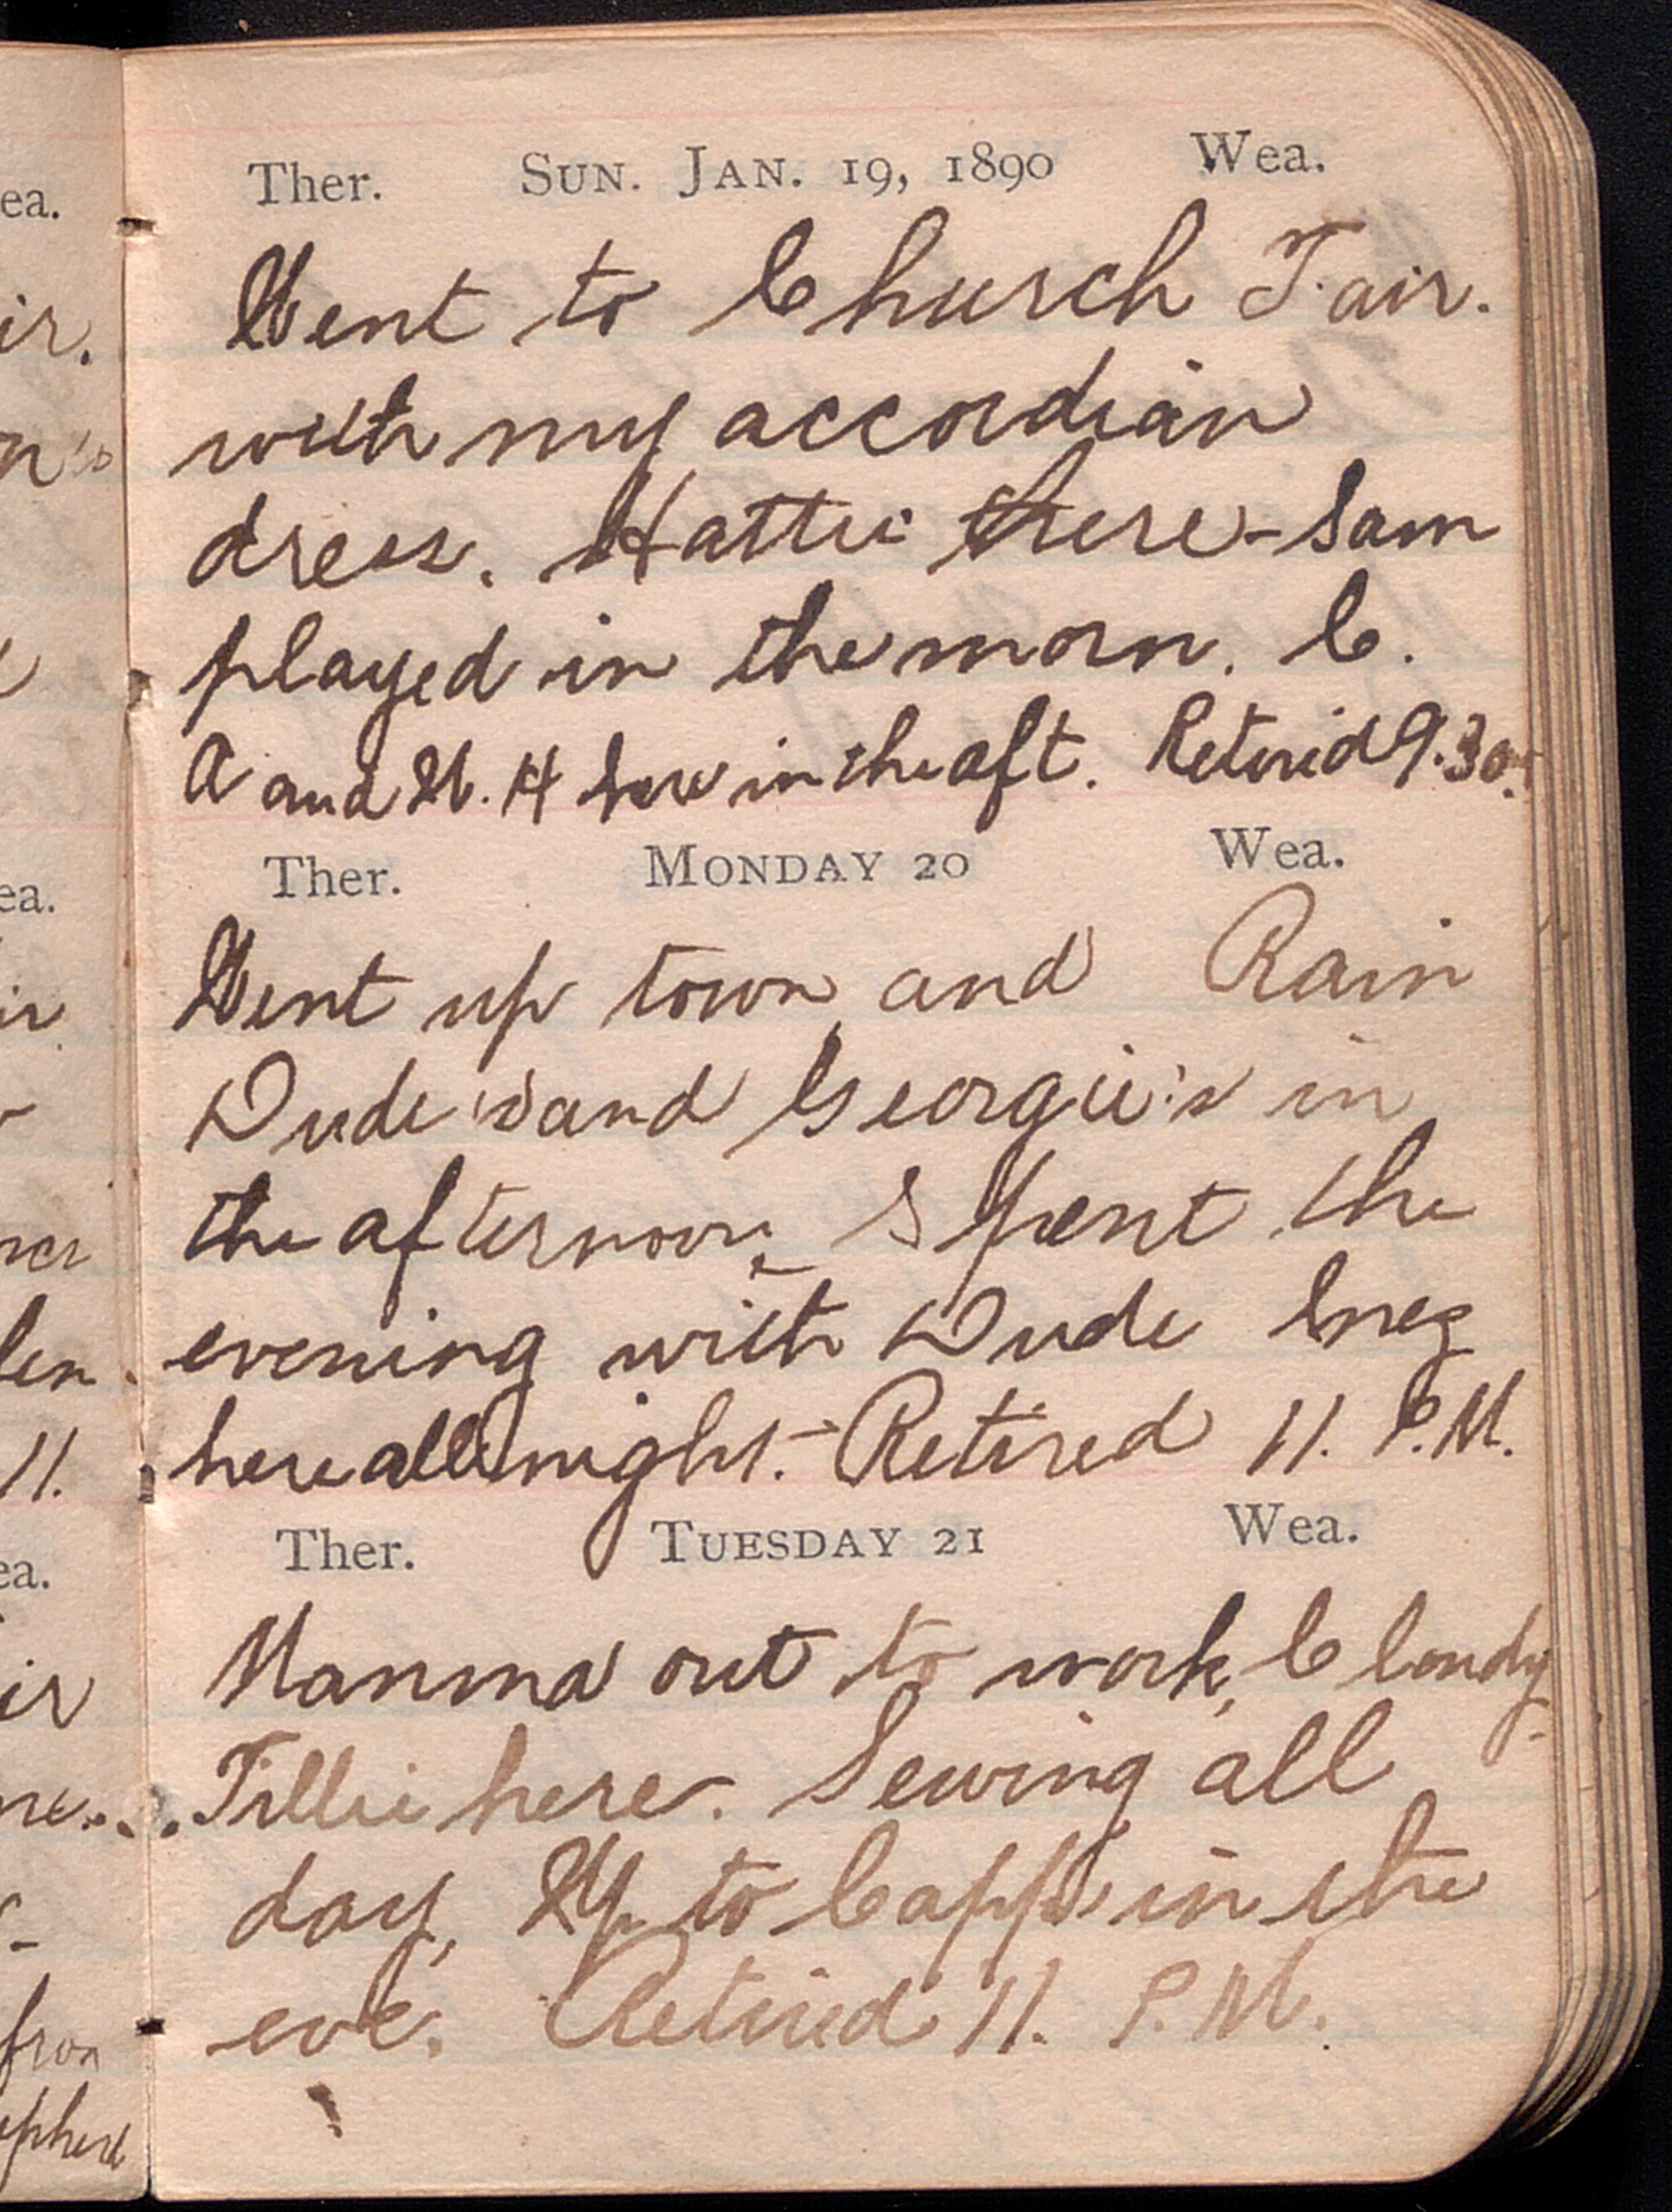 Ther. Sun. Jan. 19, 1890 Wea.
Went to Church Fair.
with my accordian
dress. Hattie there - Sam
played in the morn. C.
A and W. H here in the aft. Retired 9.30
Ther. Monday 20 Wea.
Went up town and Rain
Dude's and Georgie's in
the afternoon. Spent the
evening with Dude Inez
here all night. - Retired 11. P.M.
Ther. Tuesday 21 Wea.
Mamma out to work, Cloudy
Tillie here. Sewing all
day, Up to Capp in the
eve. Retired 11. P.M.